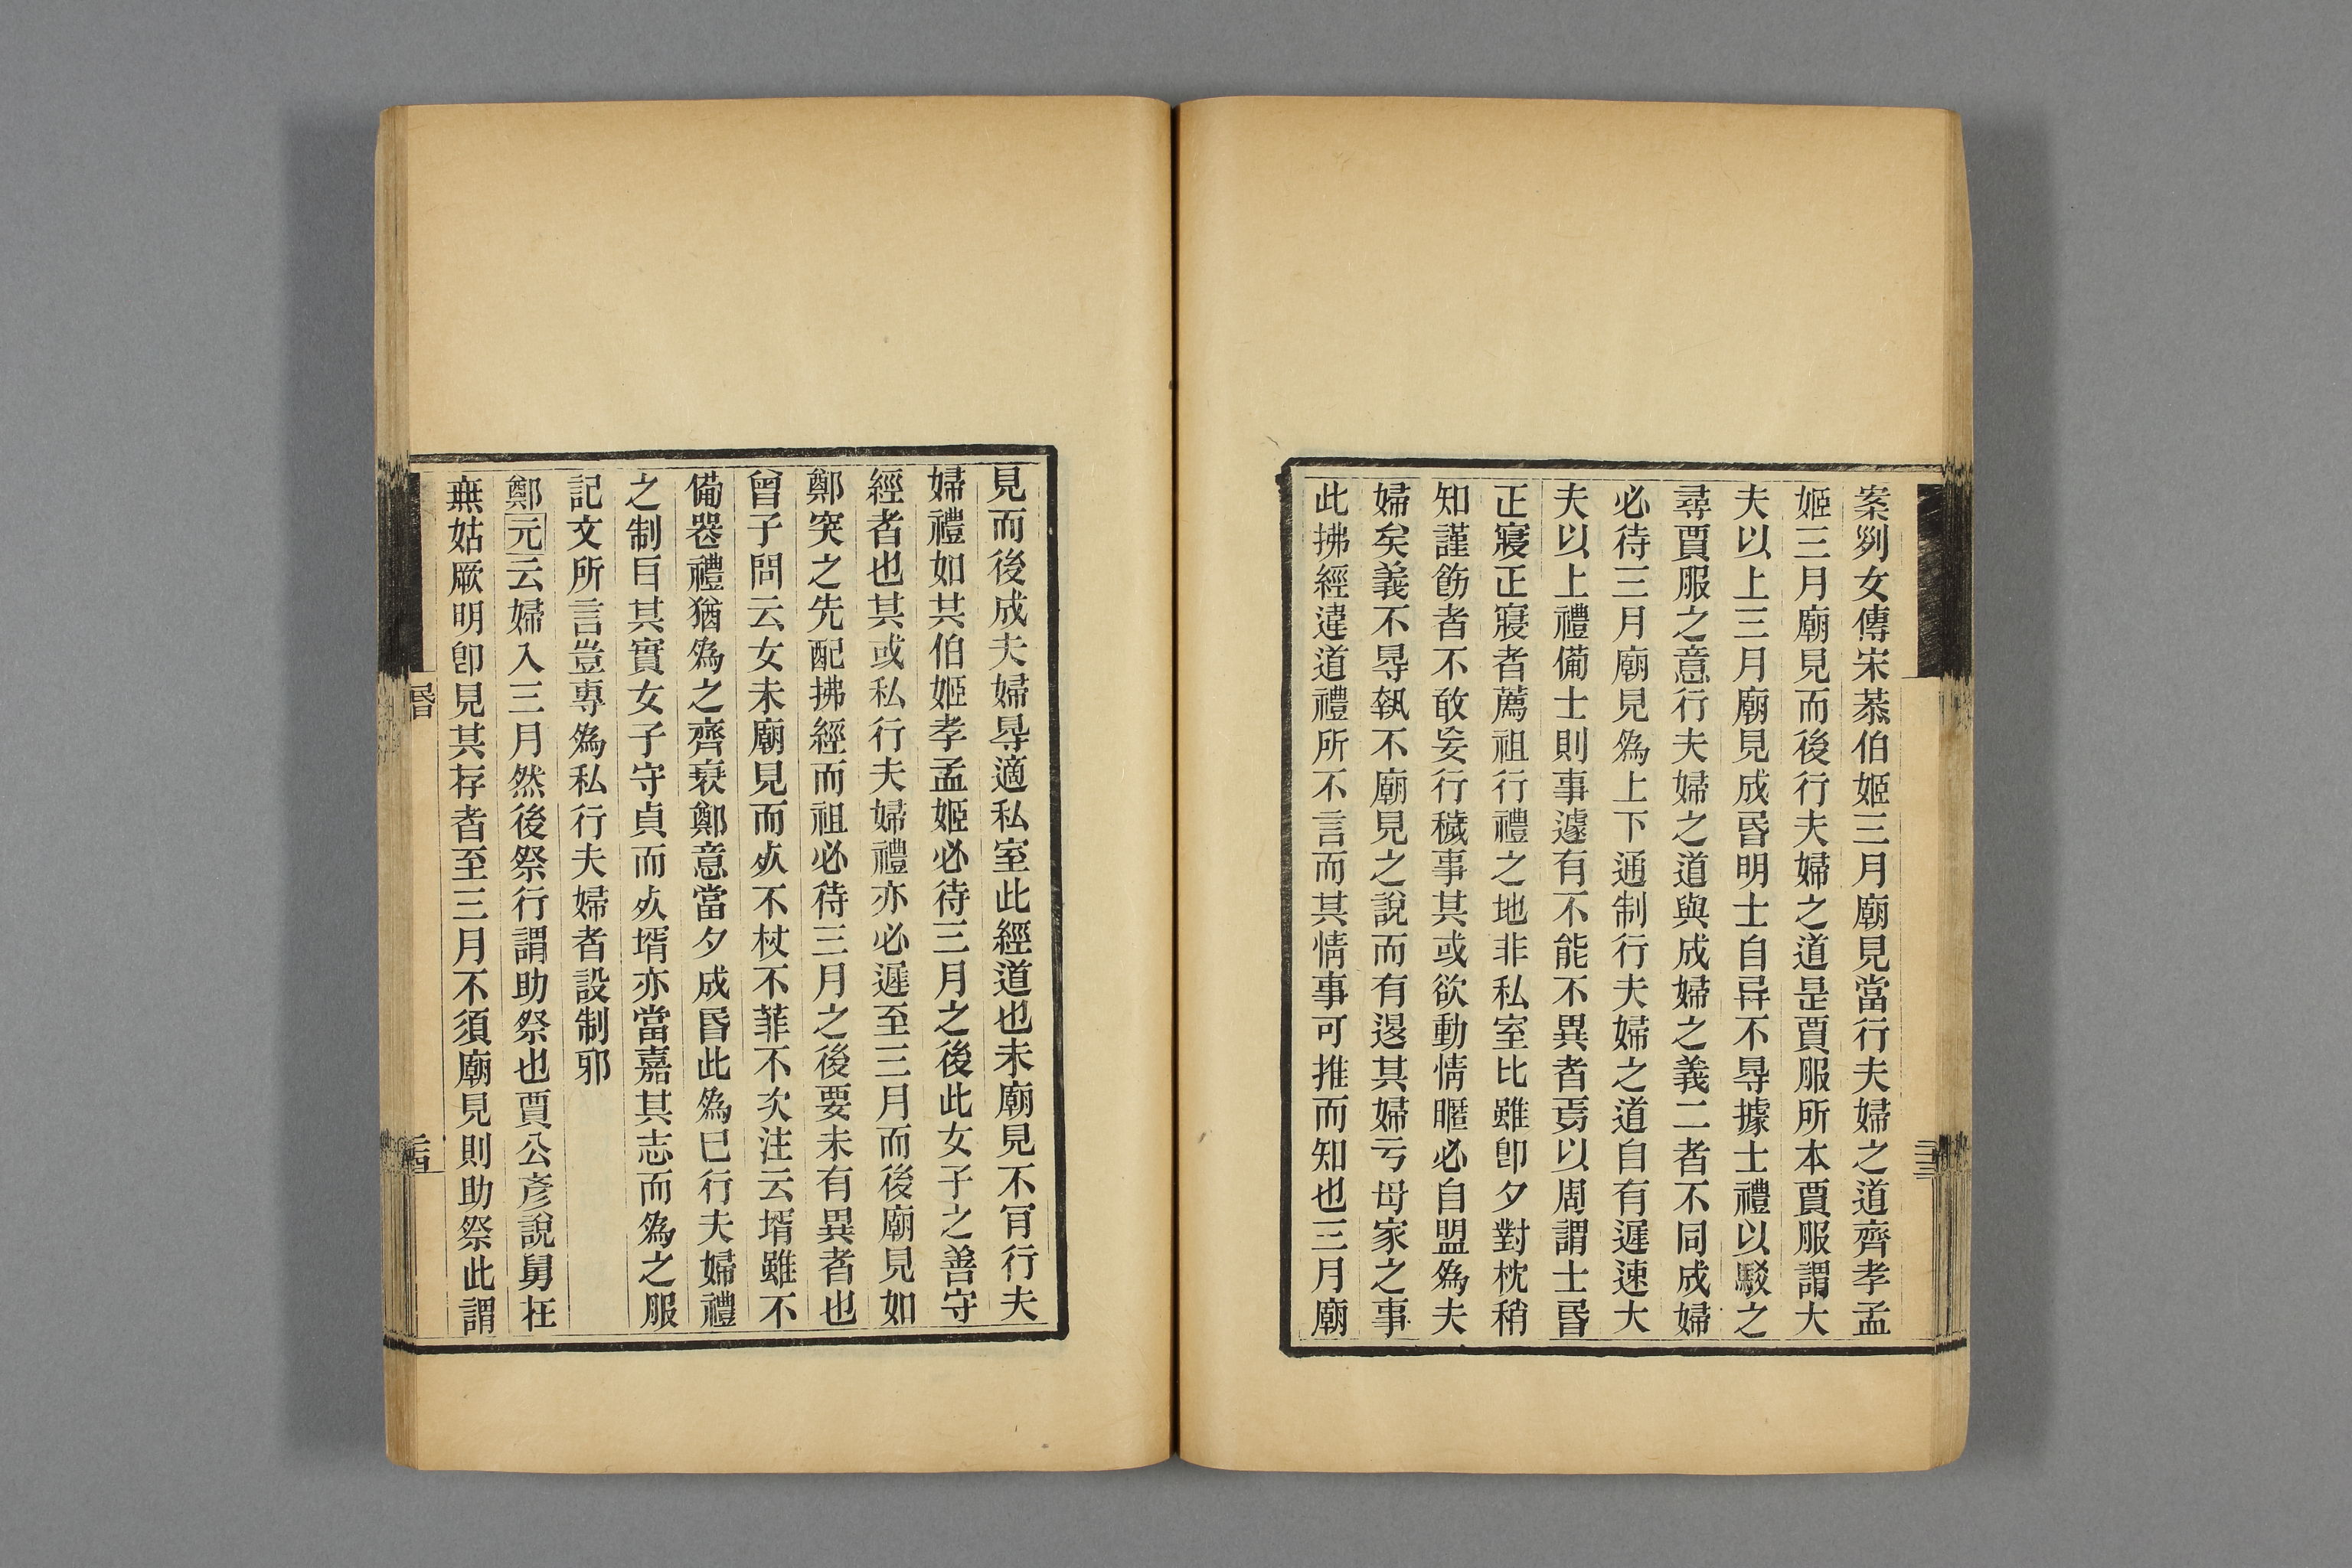 案列女傳宋恭伯姬三月廟見當行夫婦之道齊孝孟
姬三月廟見而後行夫婦之道是賈服所本賈服謂大
夫以上三月廟見成昏明士自异不㝵據士禮以駁之
尋賈服之意行夫婦之道與成婦之義二者不同成婦
必待三月廟見爲上下通制行夫婦之道自有遲速大
夫以上禮備士則事遽有不能不異者焉以周謂士昏
正寢正寢者薦祖行禮之地非私室比雖卽夕對枕稍
知謹飭者不敢妄行穢事其或欲動情暱必自盟爲夫
婦矣義不㝵執不廟見之說而有逯其婦亏母家之事
此拂經違道禮所不言而其情事可推而知也三月廟
見而後成夫婦㝵適私室此經道也未廟見不肎行夫
婦禮如其伯姬孝孟姬必待三月之後此女子之善守
經者也其或私行夫婦禮亦必遲至三月而後廟見如
鄭突之先配拂經而祖必待三月之後要未有異者也
曾子問云女未廟見而死不杖不菲不次注云壻雖不
備器禮猶爲之齊衰鄭意當夕成昏此爲已行夫婦禮
之制㠯其實女子守貞而死壻亦當嘉其志而爲之服
記文所言豈專爲私行夫婦者設制邪
鄭元云婦入三月然後祭行謂助祭也賈公彥說舅在
無姑厥明卽見其存者至三月不須廟見則助祭此謂
昏
三四
三三